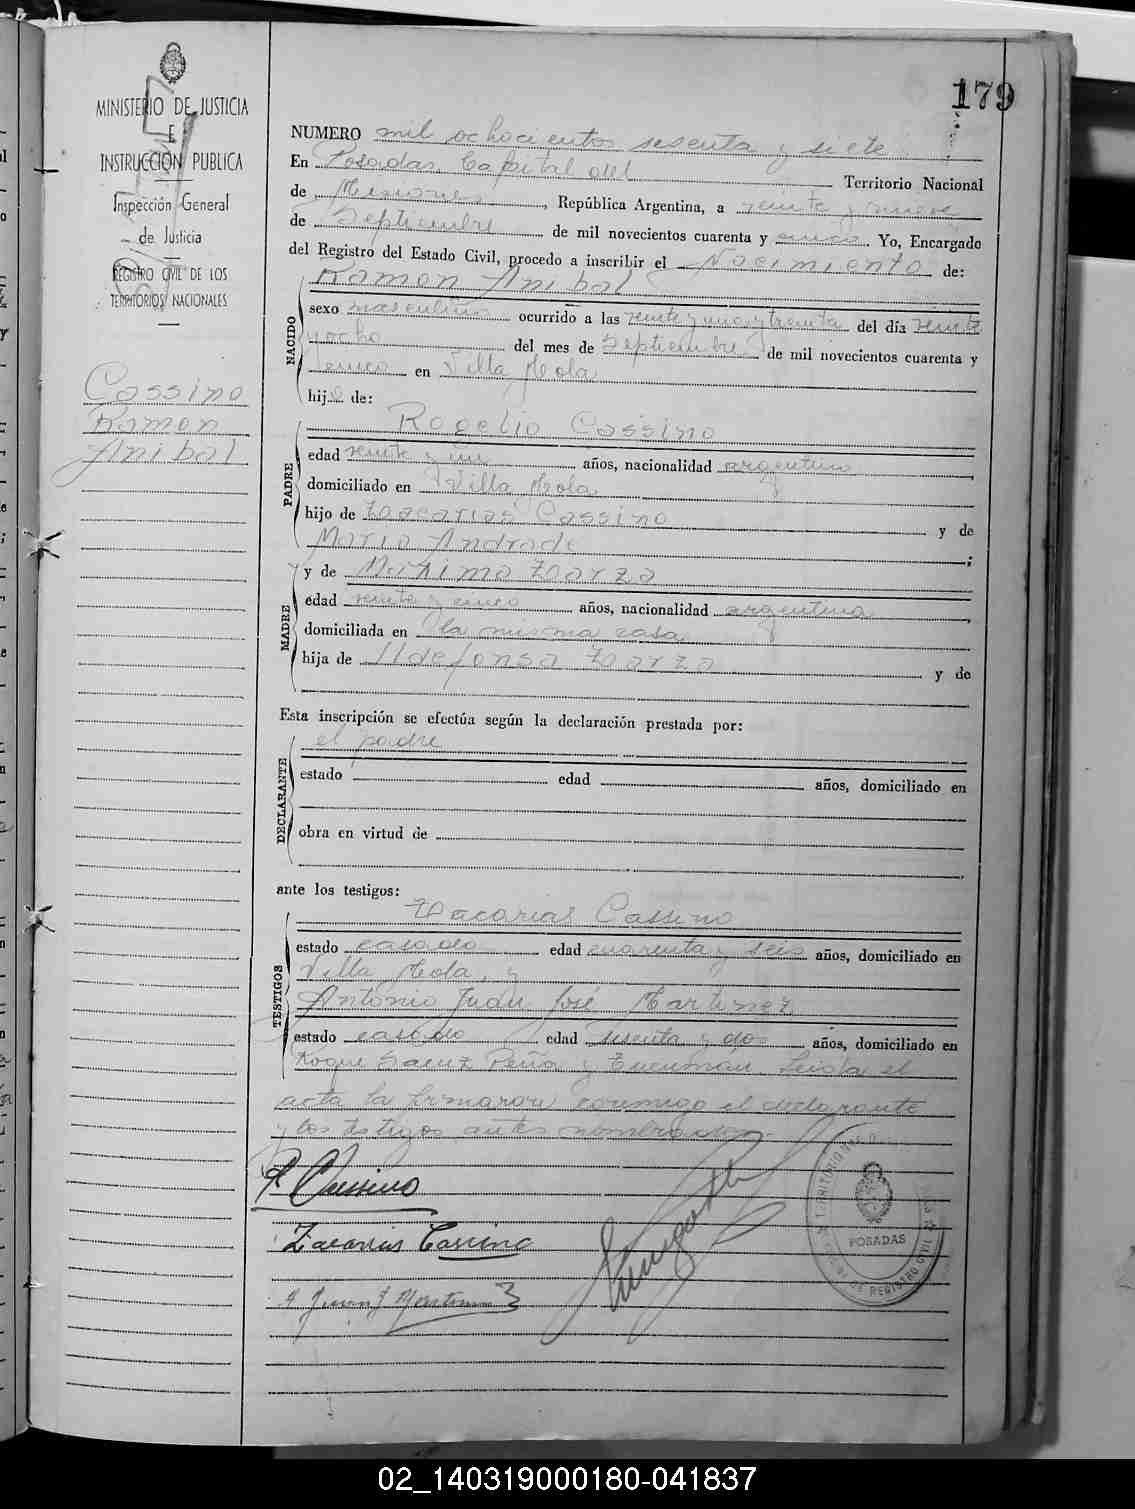 179
MINISTERIO DE JUSTICIA
E
INSTRUCCIÓN PUBLICA
Inspección General
de Justicia
REGISTRO CIVIL DE LOS
TERRITORIOS NACIONALES
Cassino
Ramon
Anibal
NUMERO mil ochocientos sesenta y siete
En Posadas, Capital del Territorio Nacional
de Misiones, República Argentina, a veinte y nueve
de Septiembre de mil novecientos cuarenta y cinco Yo, Encargado
del Registro del Estado Civil, procedo a inscribir el Nacimiento de:
Ramon Anibal
NACIDO
sexo masculino ocurrido a las veinte y una y treinta del día veinte
y ocho del mes de Septiembre de mil novecientos cuarenta y
cinco en Villa Mola
hijo de:
Rogelio Cassino
PADRE
edad veinte y un años, nacionalidad argentino
domiciliado en Villa Mola
hijo de Zacarias Cassino y de
Maria Andrade ;
y de Maxima Zarza
MADRE
edad veinte y cinco años, nacionalidad argentina,
domiciliada en la misma casa
hija de Ildefonsa Zarza y de
Esta inscripción se efectúa según la declaración prestada por:
el padre
DECLARANTE
estado edad años, domiciliado en
obra en virtud de
ante los testigos:
Zacarias Cassino
TESTIGOS
estado casado edad cuarenta y seis años, domiciliado en
Villa Mola, y
Antonio Juan José Martinez
estado casado edad sesenta y dos años, domiciliado en
Roque Saenz Peña y Tucuman. Leida el
acta la firmaron conmigo el declarante
y los testigos antes nombrados.
R Cassino
Zacarias Cassino
A Juan J Martinez
POSADAS
02_140319000180-041837